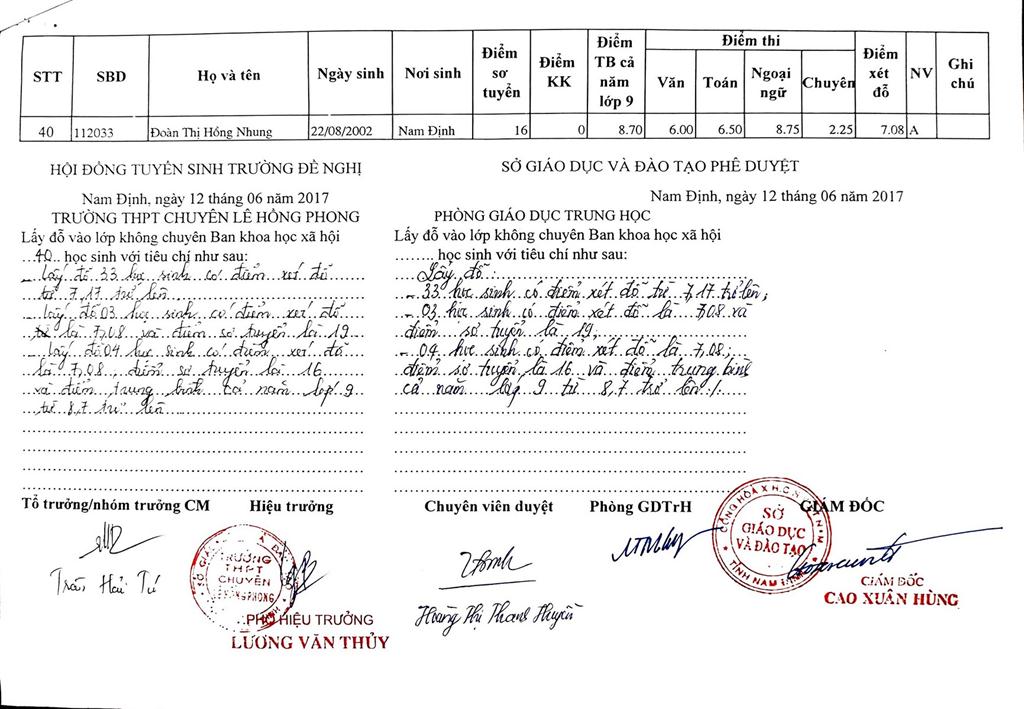 STT SBD Họ và tên Ngày sinh Nơi sinh Điểm sơ tuyển Điểm KK Điểm TB cả năm lớp 9 Điểm thi Văn Toán Ngoại ngữ Chuyên Điểm xét đỗ NV Ghi chú
40 112033 Đoàn Thị Hồng Nhung 22/08/2002 Nam Định 16 0 8.70 6.00 6.50 8.75 2.25 7.08 A
HỘI ĐỒNG TUYỂN SINH TRƯỜNG ĐỀ NGHỊ
Nam Định, ngày 12 tháng 06 năm 2017
TRƯỜNG THPT CHUYÊN LÊ HỒNG PHONG
Lấy đỗ vào lớp không chuyên Ban khoa học xã hội
40 học sinh với tiêu chí như sau:
- Lấy đỗ 33 học sinh có điểm xét đỗ
từ 7,17 trở lên
- Lấy đỗ 03 học sinh có điểm xét đỗ
là 7,08 và điểm sơ tuyển là 19
- Lấy đỗ 04 học sinh có điểm xét đỗ
là 7,08, điểm sơ tuyển là 16
và điểm trung bình cả năm lớp 9
từ 8,7 trở lên
Tổ trưởng/nhóm trưởng CM Hiệu trưởng
Trần Hải Tú
TRƯỜNG
THPT
CHUYÊN
LÊ HỒNG PHONG
PHÓ HIỆU TRƯỞNG
LƯƠNG VĂN THỦY
SỞ GIÁO DỤC VÀ ĐÀO TẠO PHÊ DUYỆT
Nam Định, ngày 12 tháng 06 năm 2017
PHÒNG GIÁO DỤC TRUNG HỌC
Lấy đỗ vào lớp không chuyên Ban khoa học xã hội
........ học sinh với tiêu chí như sau:
Lấy đỗ:
- 33 học sinh có điểm xét đỗ từ 7,17 trở lên;
- 03 học sinh có điểm xét đỗ là 7,08 và
điểm sơ tuyển là 19,
- 04 học sinh có điểm xét đỗ là 7,08;
điểm sơ tuyển là 16 và điểm trung bình
cả năm lớp 9 từ 8,7 trở lên ./.
Chuyên viên duyệt Phòng GDTrH GIÁM ĐỐC
Hoàng Thị Thanh Huyền
CỘNG HÒA X.H.C.N VIỆT NAM
SỞ
GIÁO DỤC
VÀ ĐÀO TẠO
TỈNH NAM ĐỊNH
GIÁM ĐỐC
CAO XUÂN HÙNG